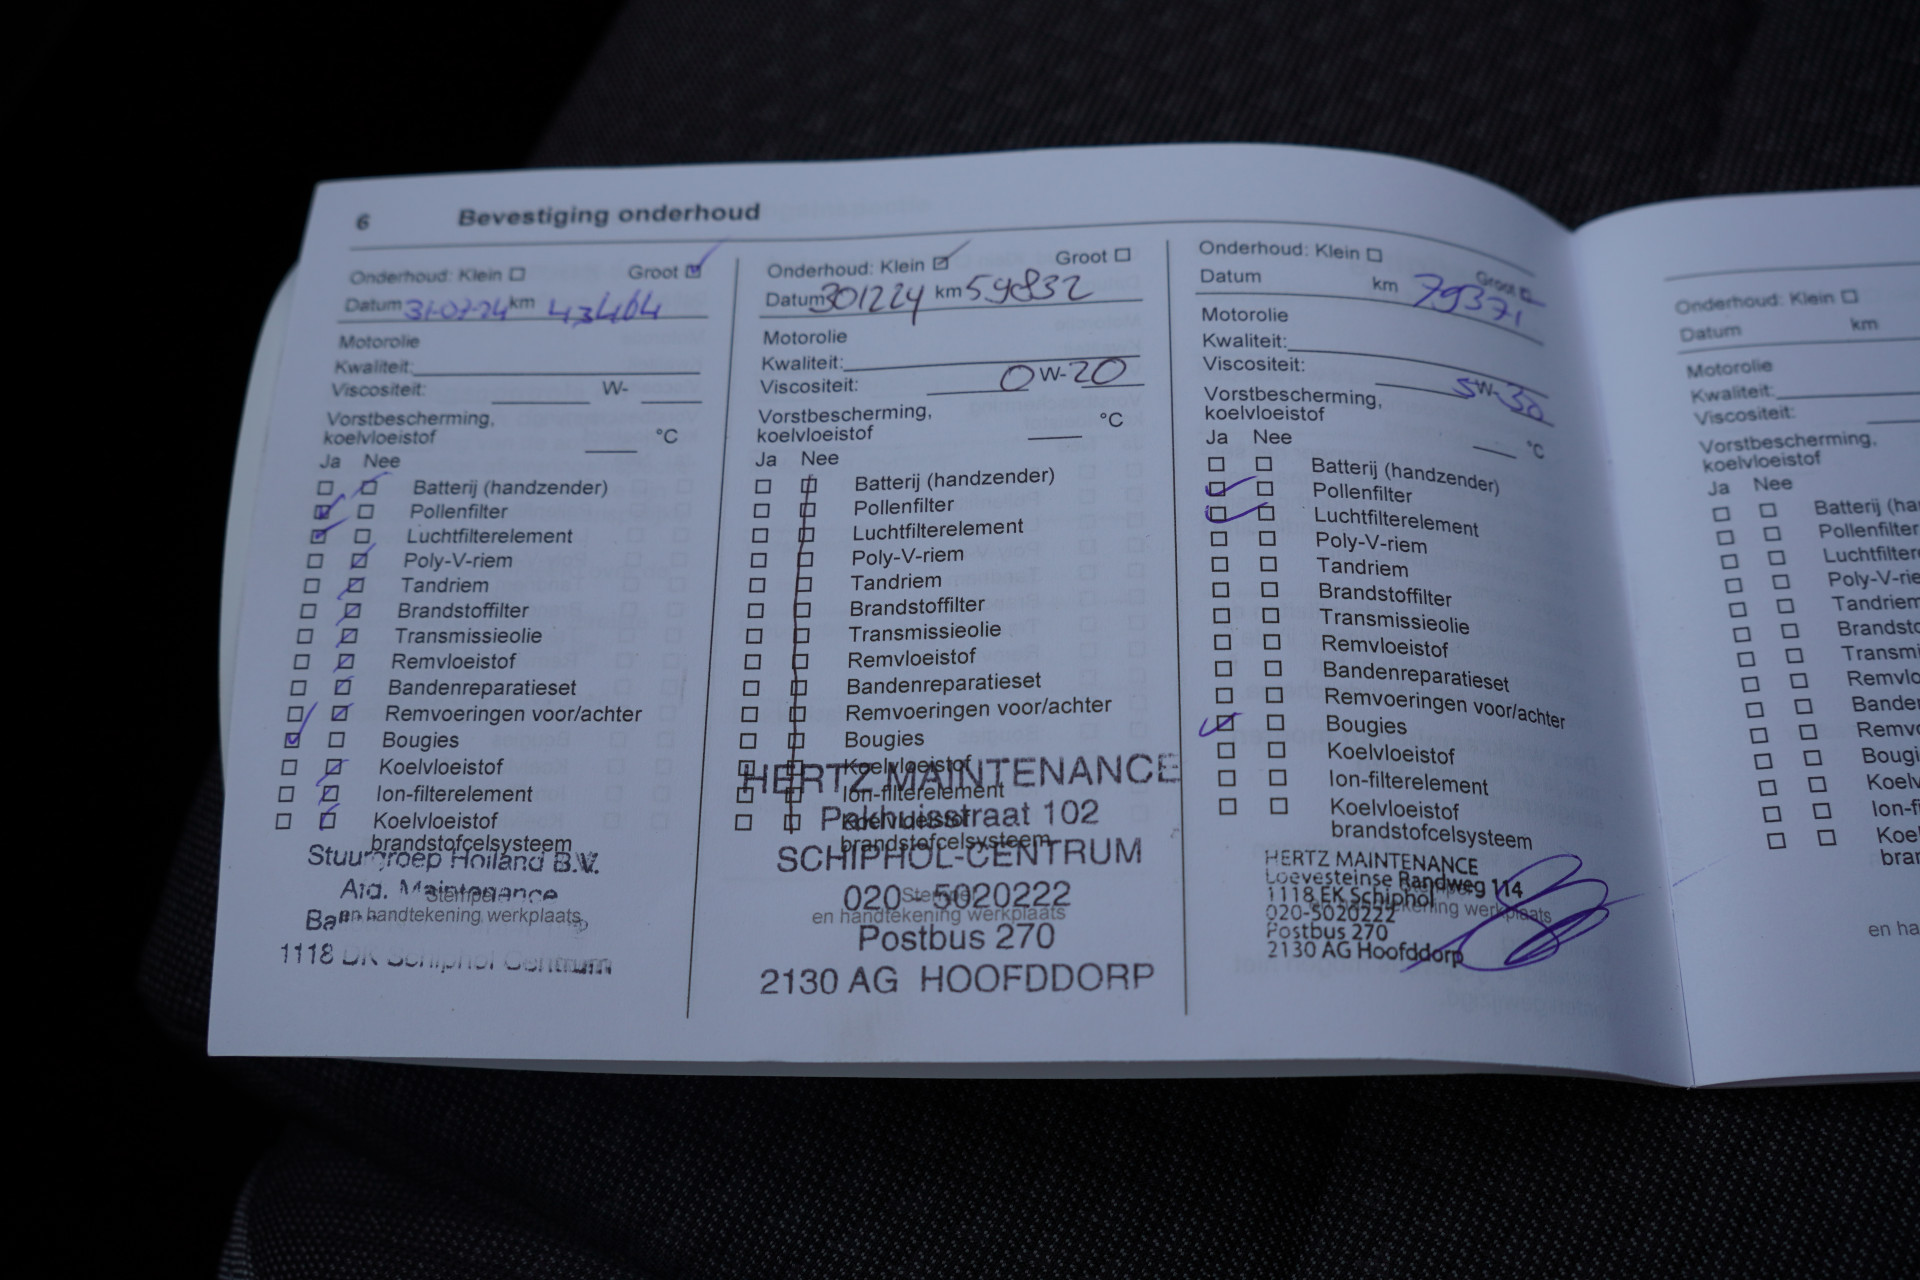 6 Bevestiging onderhoud
Onderhoud: Klein Groot
Datum 31-07-24 km 43464
Motorolie
Kwaliteit:
Viscositeit: W-
Vorstbescherming,
koelvloeistof °C
Ja Nee
Batterij (handzender)
Pollenfilter
Luchtfilterelement
Poly-V-riem
Tandriem
Brandstoffilter
Transmissieolie
Remvloeistof
Bandenreparatieset
Remvoeringen voor/achter
Bougies
Koelvloeistof
Ion-filterelement
Koelvloeistof
brandstofcelsysteem
Stuurgroep Holland B.V.
Afd. Maintenance
Stempel
en handtekening werkplaats
1118 DK Schiphol Centrum
Onderhoud: Klein Groot
Datum 301224 km 59832
Motorolie
Kwaliteit:
Viscositeit: 0 W-20
Vorstbescherming,
koelvloeistof °C
Ja Nee
Batterij (handzender)
Pollenfilter
Luchtfilterelement
Poly-V-riem
Tandriem
Brandstoffilter
Transmissieolie
Remvloeistof
Bandenreparatieset
Remvoeringen voor/achter
Bougies
Koelvloeistof
HERTZ MAINTENANCE
Ion-filterelement
Pakhuisstraat 102
Koelvloeistof
brandstofcelsysteem
SCHIPHOL-CENTRUM
020-5020222
Stempel
en handtekening werkplaats
Postbus 270
2130 AG HOOFDDORP
Onderhoud: Klein Groot
Datum km 79371
Motorolie
Kwaliteit:
Viscositeit: 5W-30
Vorstbescherming,
koelvloeistof °C
Ja Nee
Batterij (handzender)
Pollenfilter
Luchtfilterelement
Poly-V-riem
Tandriem
Brandstoffilter
Transmissieolie
Remvloeistof
Bandenreparatieset
Remvoeringen voor/achter
Bougies
Koelvloeistof
Ion-filterelement
Koelvloeistof
brandstofcelsysteem
HERTZ MAINTENANCE
Loevesteinse Randweg 114
1118 EK Schiphol
Stempel
en handtekening werkplaats
020-5020222
Postbus 270
2130 AG Hoofddorp
Onderhoud: Klein
Datum km
Motorolie
Kwaliteit:
Viscositeit:
Vorstbescherming,
koelvloeistof
Ja Nee
Batterij (ha
Pollenfilter
Luchtfiltere
Poly-V-rie
Tandriem
Brandsto
Transmi
Remvlo
Banden
Remvo
Bougi
Koelv
Ion-f
Koe
brar
en ha